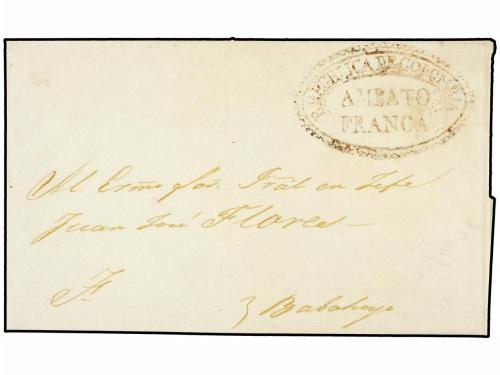 REPUBLICA DE COLOMBIA
AMBATO
FRANCA
Al Exmo Sor. Gral en Jefe
Juan José Flores
F.
Babahoyo